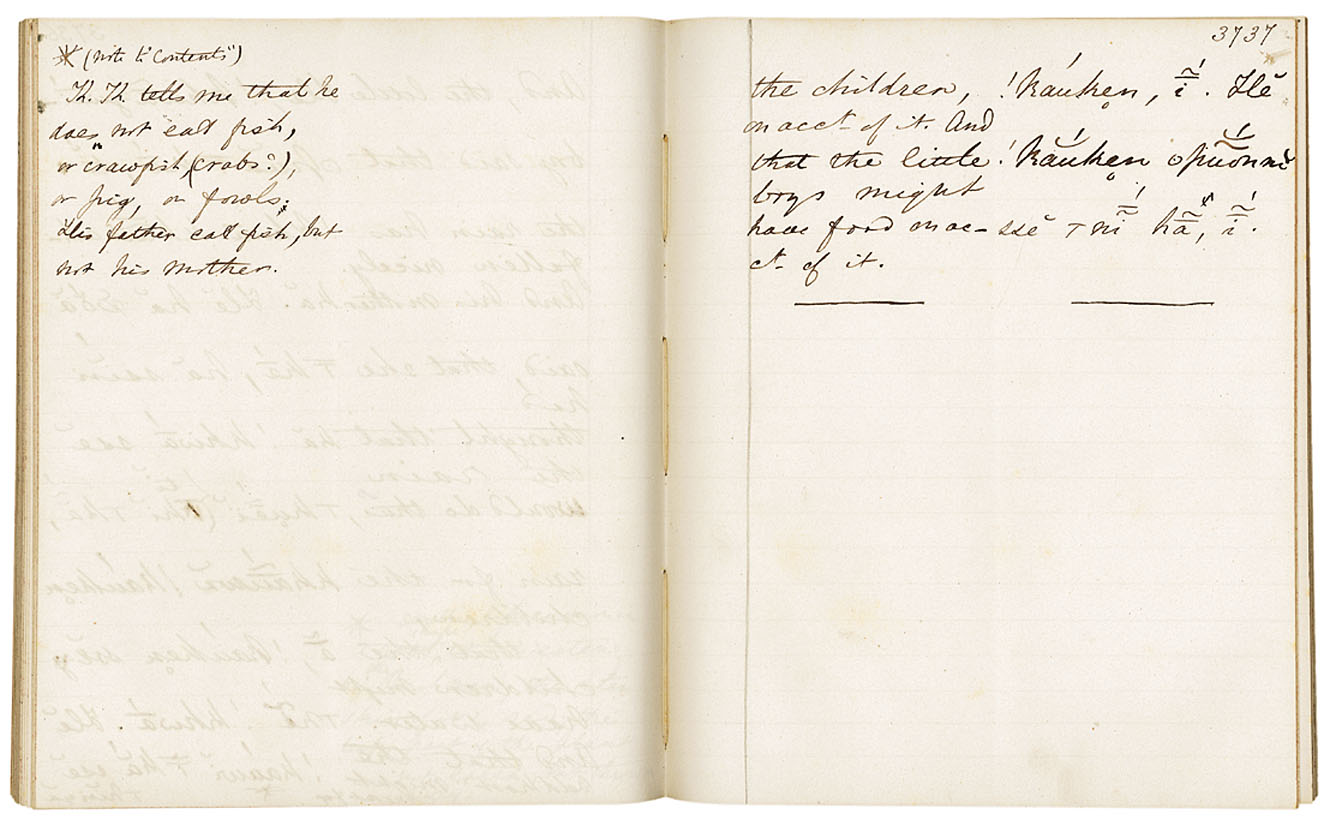 * (note to "Contents")
‖k. ‖k. tells me that he
does not eat fish,
or "crawfish, (crabs?),
or pig, or fowls;
His father eat fish, but
not his mother.
3737
the children, !kauken, ī. Hĕ
on acct of it. And
that the little !kăuken opuonni
boys might
have food on ac- ssĕ hā, ī.
ct of it.